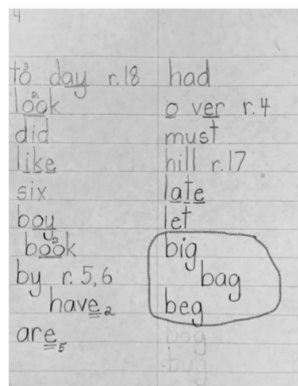 4
to³ day r.18
lo²ok
did
like
six
boy
bo²ok
by r. 5,6
have₂
are₅
had
o ver r.4
must
hill r.17
late
let
big
bag
beg
bog
bug